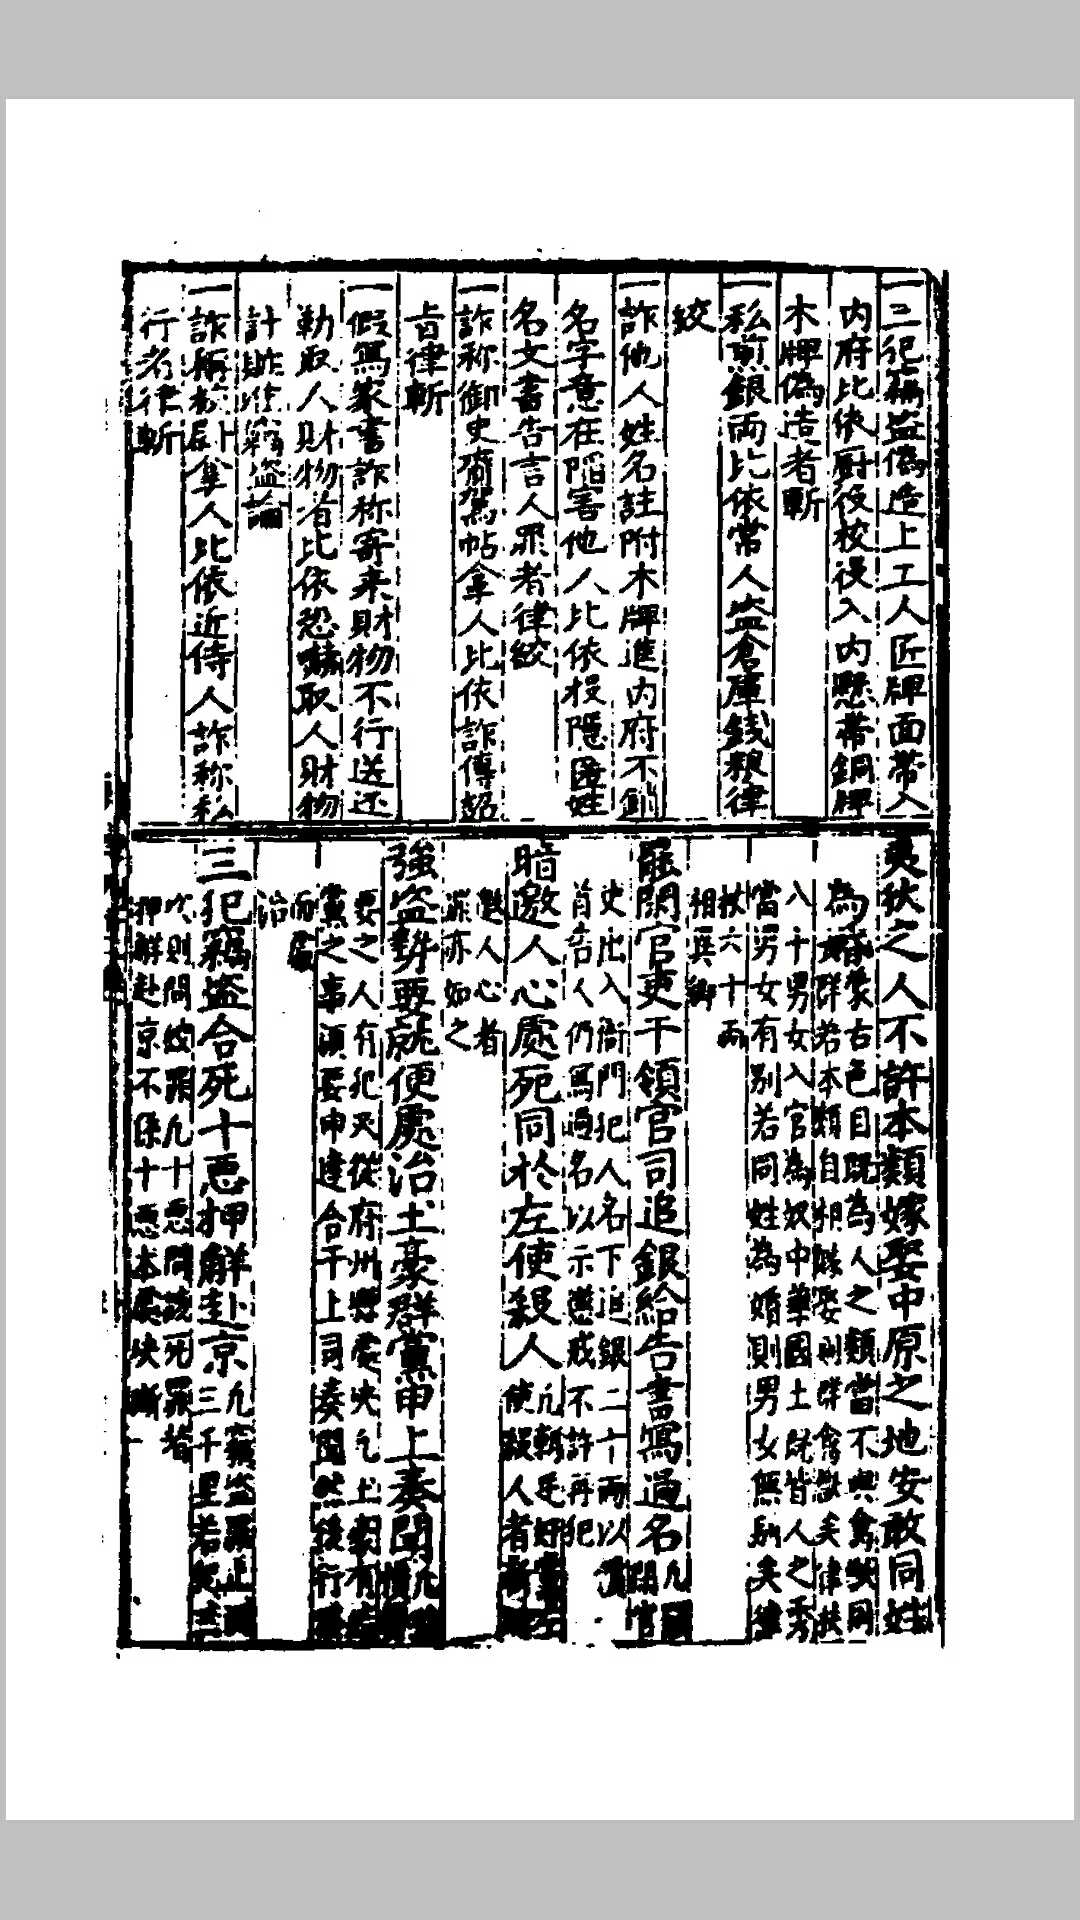 一三犯竊盜偽造上工人匠牌面帶入
内府比依厨役校役入内懸帶銅牌
木牌偽造者斬
一私煎銀兩比依常人盜倉庫錢粮律
絞
一詐他人姓名註附木牌進内府不銷
名字意在陷害他人比依投隱匿姓
名文書告言人罪者律絞
一詐称御史齎駕帖拿人比依詐傳詔
旨律斬
一假寫家書詐称寄来財物不行送还
勒取人財物者比依恐嚇取人財物
計贓准竊盜論
一詐称校尉拿人比依近侍人詐称私
行者律斬
夷狄之人不許本類嫁娶中原之地安敢同姓
為婚蒙古色目既為人之類當不與禽獸同
群若本類自相嫁娶則群禽獸矣律杖
八十男女入官為奴中華國土既皆人之秀
當男女有别若同姓為婚則男女無别矣律
杖六十兩
相
罷閑官吏干領官司追銀給告書寫過名凡
閑官
吏出入衙門犯人名下追銀二十兩以賞
首告人仍寫過名以示懲戒不許再犯
暗邀人心處死同於左使殺人凡
使殺人者
邀人心者
罪亦如之
強盜勢要就便處治土豪群黨申上奏聞凡
要之人有犯
黨之事須要申達合干上司奏聞然後行
而
治
三犯竊盜合死十恶押解赴京凡竊盜罪止
三千里若
次則問絞罪凡十恶問該死罪者
押解赴京不係十恶本處决斷